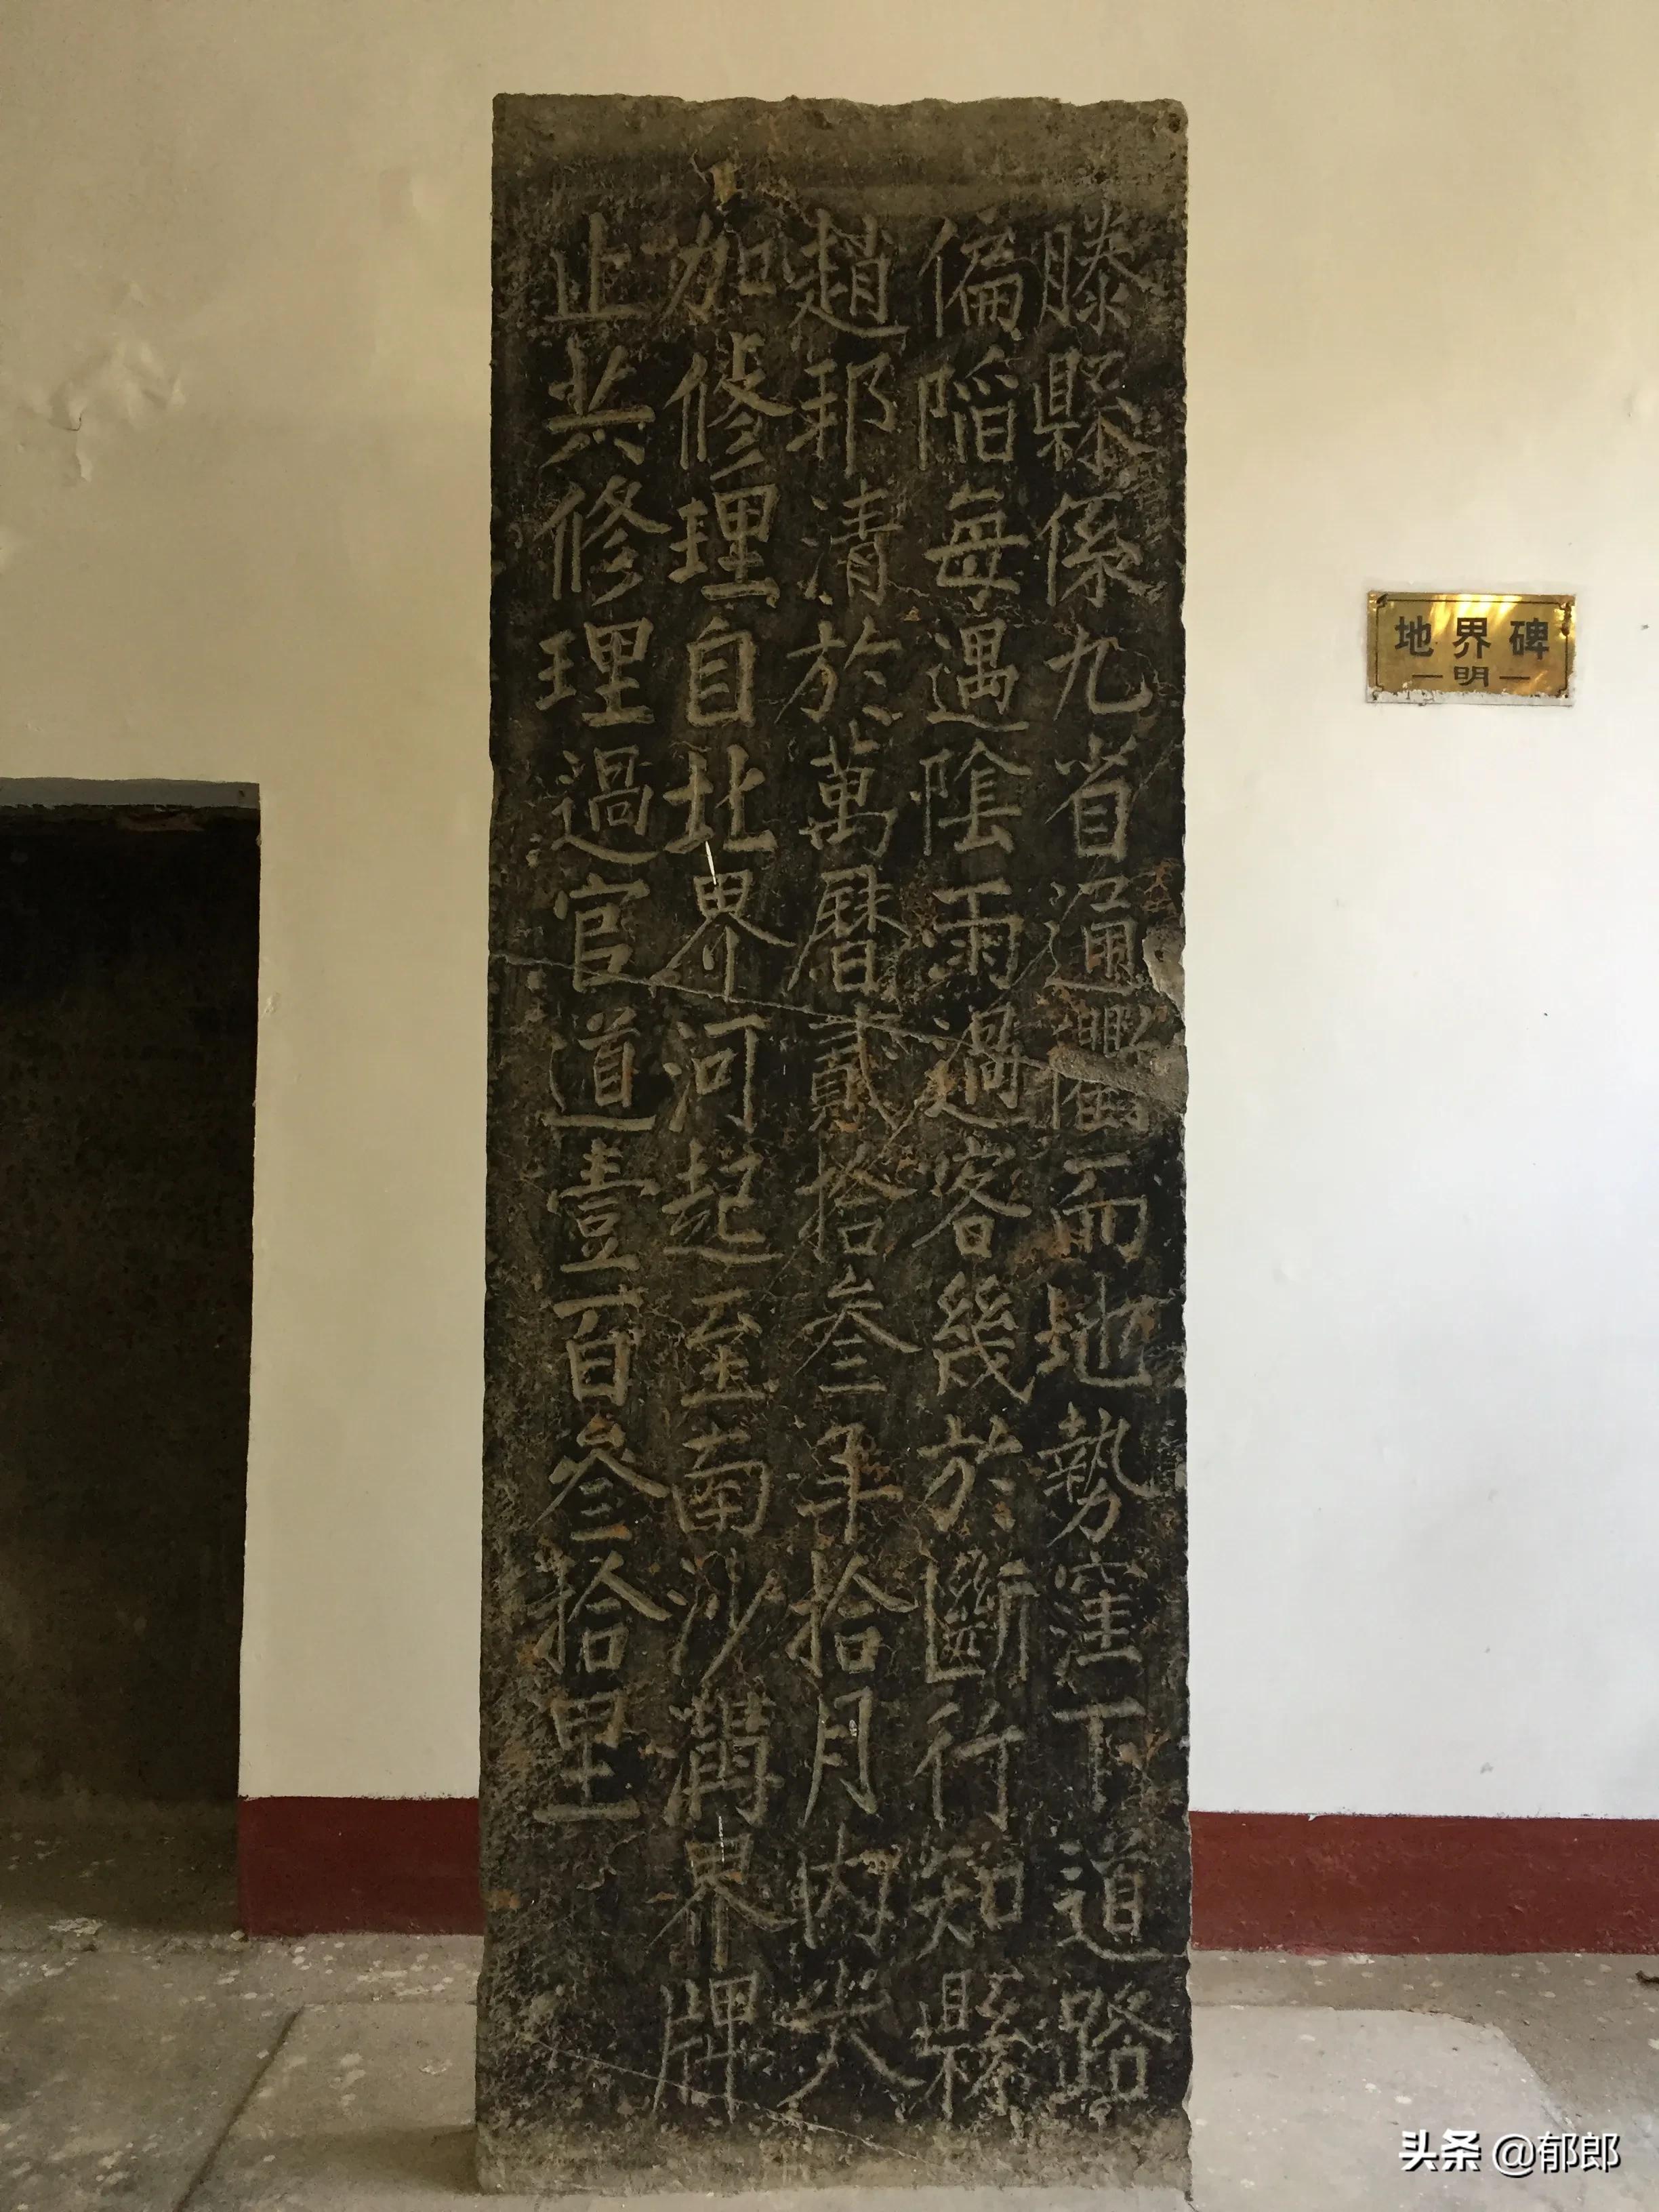 滕縣係九省通衢而地勢窪下道路
偏陷每遇陰雨過客幾於斷行知縣
趙邦清於萬曆貳拾叁年拾月內大
加修理自北界河起至南沙溝界牌
止共修理過官道壹百叁拾里
地界碑
—明—
头条 @郁郎